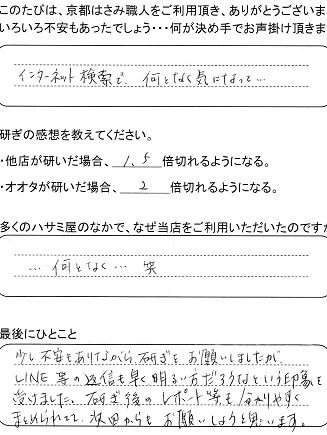 このたびは、京都はさみ職人をご利用頂き、ありがとうございま
いろいろ不安もあったでしょう・・・何が決め手でお声掛け頂きま
インターネット検索で、何となく気になって…
研ぎの感想を教えてください。
・他店が研いだ場合、1,5倍切れるようになる。
・オオタが研いだ場合、2倍切れるようになる。
多くのハサミ屋のなかで、なぜ当店をご利用いただいたのですか
…何となく…笑
最後にひとこと
少し不安もありながら、研ぎをお願いしましたが、
LINE等の返信も早く明るい方だろうなという印象を
受けました。研ぎ後のレポート等も分かりやすく
まとめられてて、次回からもお願いしようと思います。